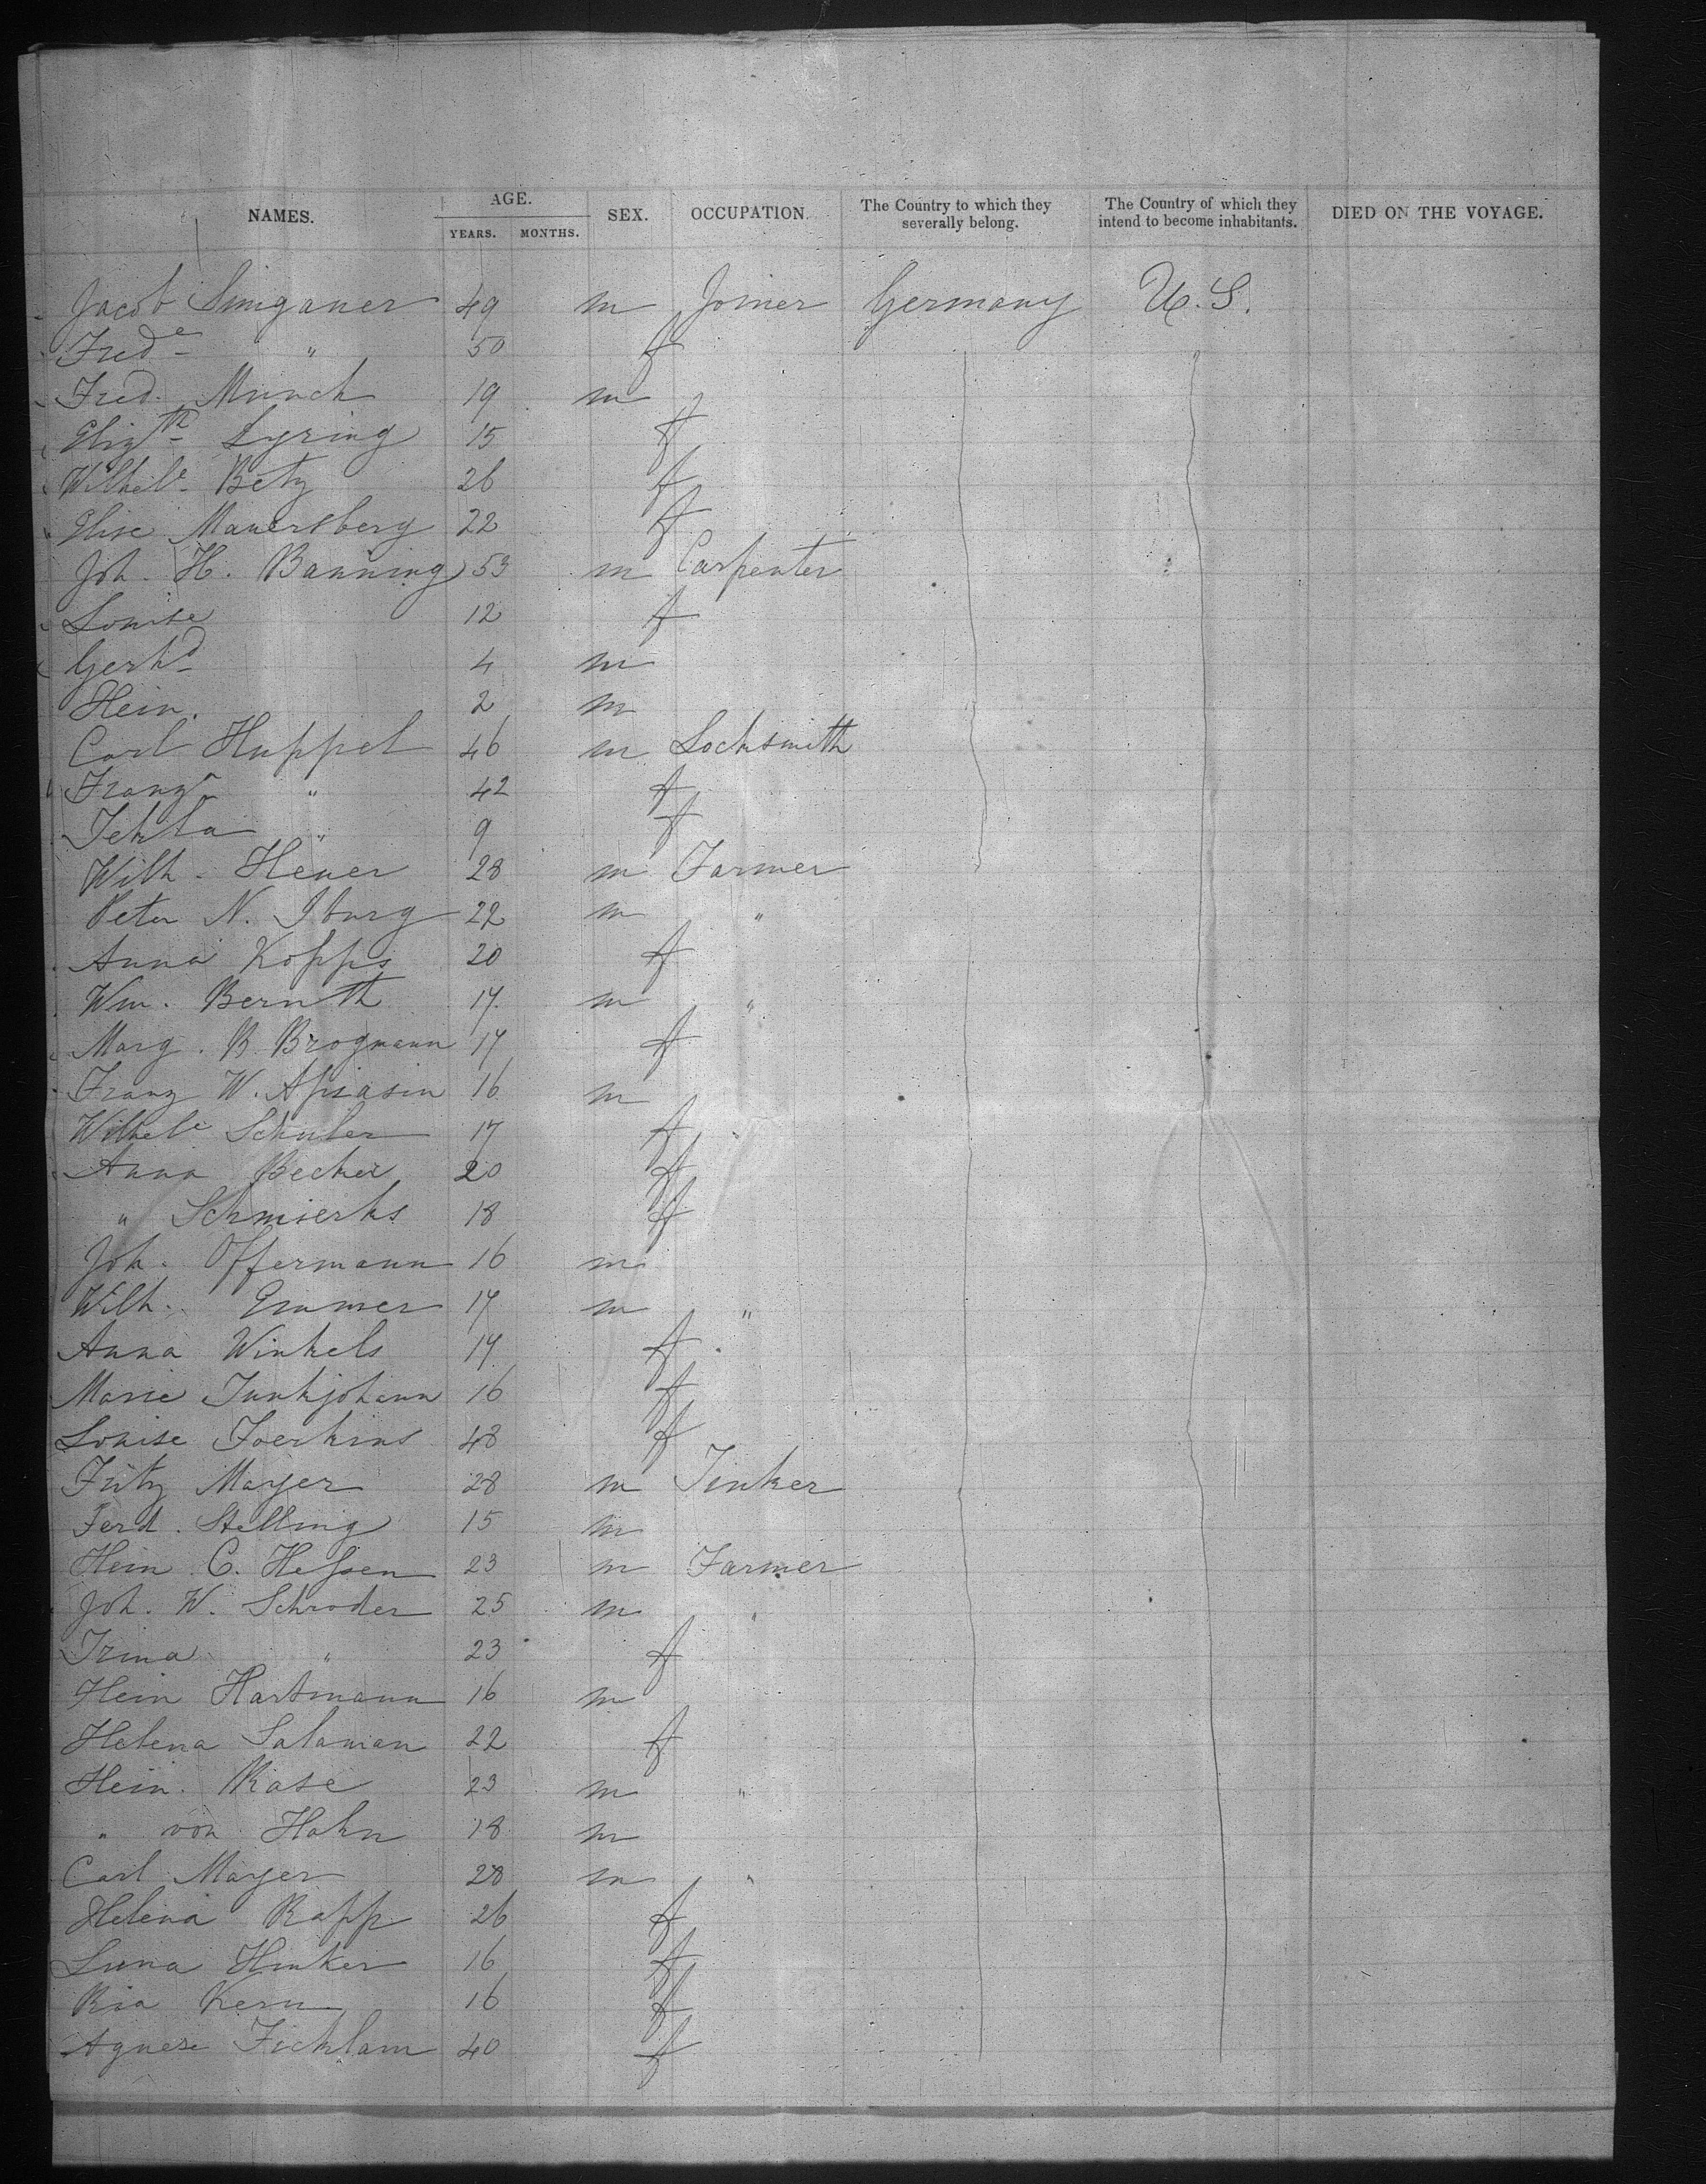 NAMES. AGE. YEARS. MONTHS. SEX. OCCUPATION. The Country to which they severally belong. The Country of which they intend to become inhabitants. DIED ON THE VOYAGE.
Jacob Simganer 49 m Joiner Germany U.S.
Fredᵉ " 50 f
Fred. Munch 19 m
Elizᵗʰ Lyring 15 f
Wilhelᵉ Betz 26 f
Elise Mauersberg 22 f
Joh. H. Banning 53 m Carpenter
Louise 12 f
Gerhᵈ 4 m
Hein. 2 m
Carl Huppel 46 m Locksmith
Franzᵃ " 42 f
Tekla " 9 f
Wilh. Heuer 28 m Farmer
Peter N. Iburg 22 m "
Anna Kopps 20 f
Wm. Bernth 17 m "
Marg. B. Brogmann 17 f
Franz W. 16 m
Wilhelᵉ Schuler 17 f
Anna Becker 20 f
" Schmierks 18 f
Joh. Offermann 16 m
Wilh. Emmer 17 m "
Anna Winkels 17 f
Marie Junkjohann 16 f
Louise Joerkins 48 f
Fritz Mayer 28 m Tinker
Ferd. Stelling 15 m
Hein C. Hessen 23 m Farmer
Joh. W. Schroder 25 m "
Trina " 23 f
Hein Hartmann 16 m
Helena Salaman 22 f
Hein. Kase 23 m "
" von Hahn 18 m
Carl Mayer 28 m "
Helena Rapp 26 f
Hinker 16 f
Ria Kern 16 f
Agnese Ficklam 40 f